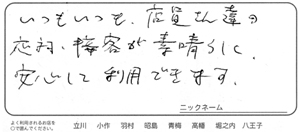 いつもいつも、店員さん達の
応対・接客が素晴らしく
安心して利用できます。
ニックネーム
よく利用されるお店を
○で囲んでください。
立川 小作 羽村 昭島 青梅 高幡 堀之内 八王子